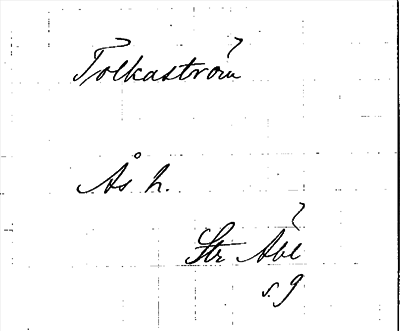 Tolkaström
Ås h.
Str Åbl
s. 9